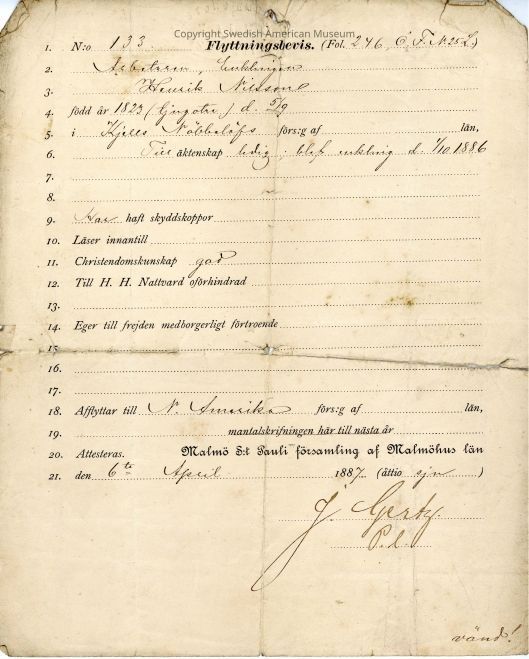 Copyright Swedish American Museum
1. N:o 133. Flyttningsbevis. (Fol. 246,
2. Arbetaren, Enklingen
3. Henrik Nilsson
4. född år 1823 (tjugotre) d. 5/9
5. i Kjells Nöbbelöfs förs:g af län,
6. Till äktenskap ledig; blef enkling d. 7/10 1886
7.
8.
9. Har haft skyddskoppor
10. Läser innantill
11. Christendomskunskap god
12. Till H. H. Nattvard oförhindrad
13.
14. Eger till frejden medborgerligt förtroende
15
16.
17.
18. Afflyttar till N. Amerika förs:g af län,
19. mantalskrifningen här till nästa år
20. Attesteras. Malmö S:t Pauli församling af Malmöhus län
21. den 6te April 1887 (åttio sju)
P. l.
vänd!